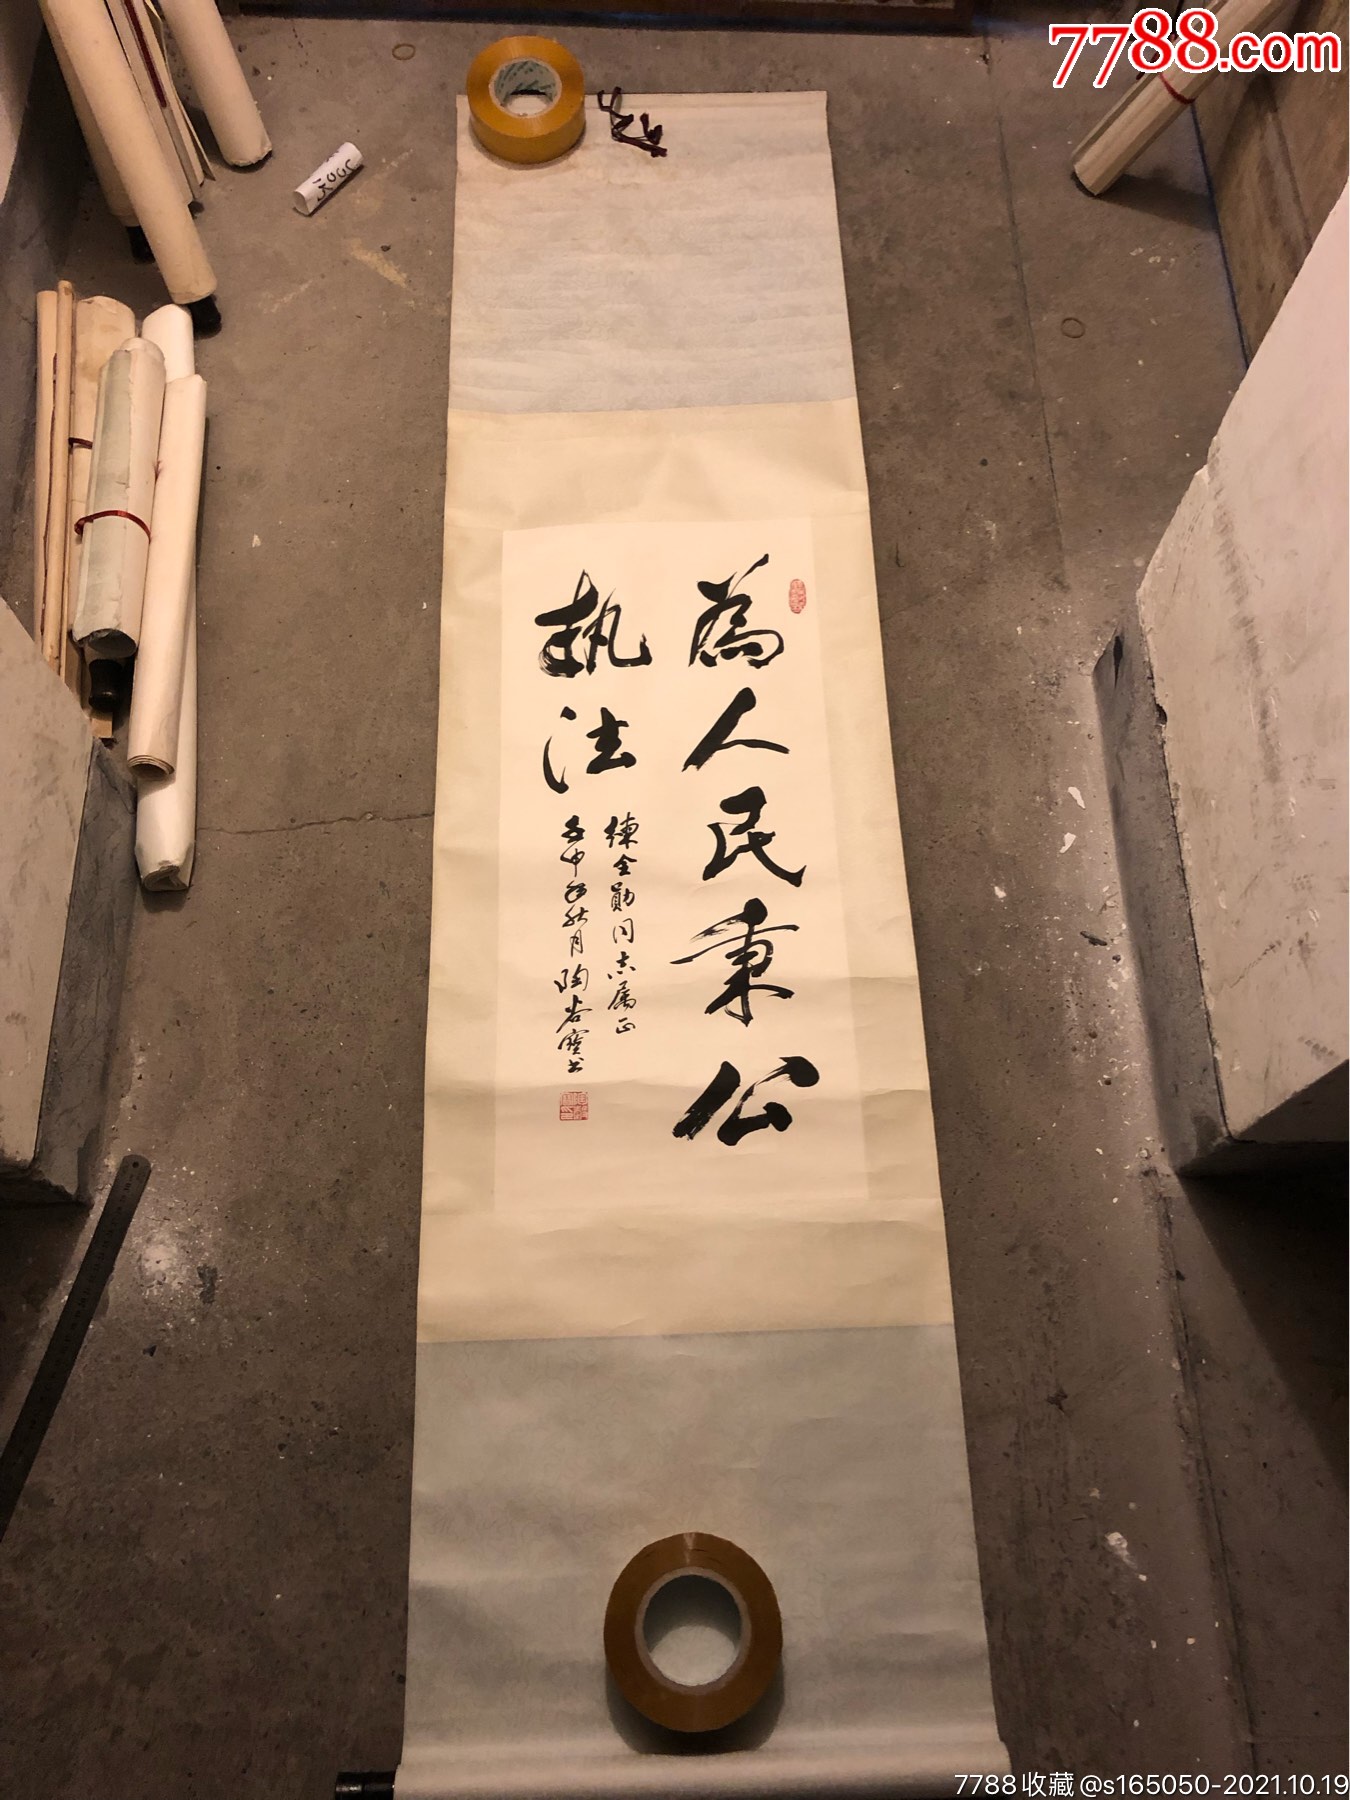 7788.com
為人民秉公
执法
練全勛同志属正
壬申年秋月陶谷寶书
7788收藏@s165050-2021.10.19